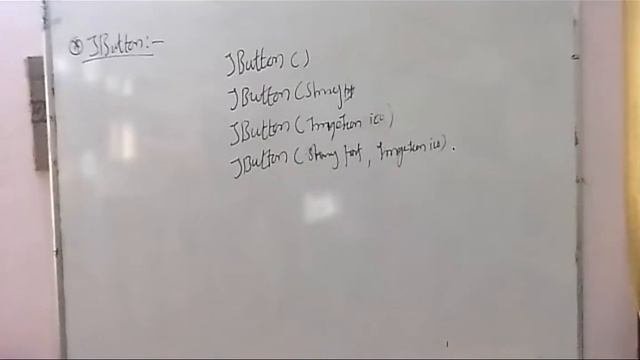 * JButton:-
JButton()
JButton(String
JButton(ImageIcon ico)
JButton(String text, ImageIcon ico).